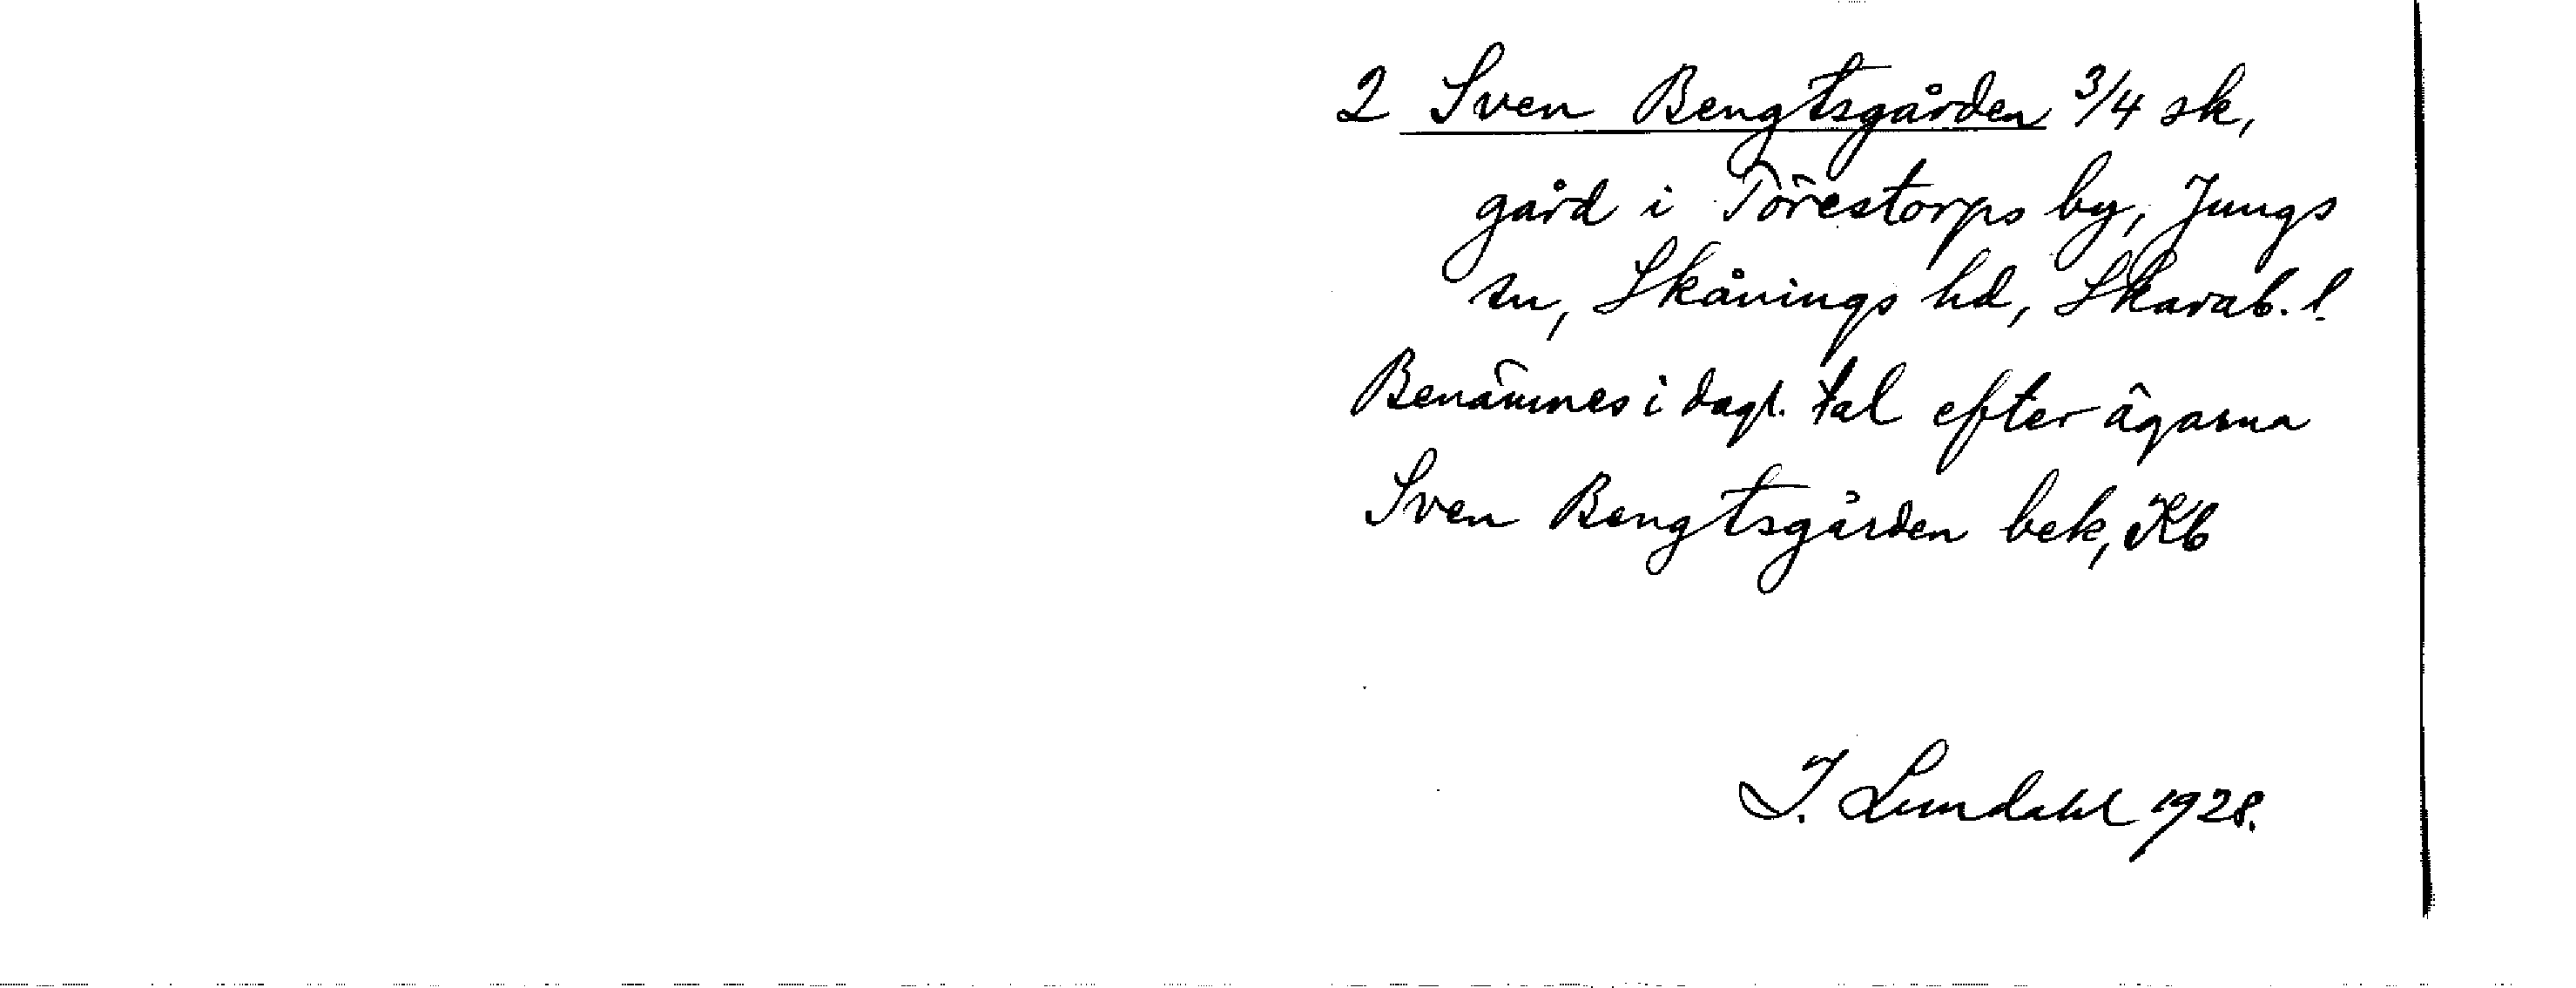 2 Sven Bengtsgården 3/4 sk,
gård i Törestorps by, Jungs
sn, Skånings hd, Skarab. l.
Benämnes i dagl. tal efter ägarna
Sven Bengtsgården bek, Kb
I. Lundahl 1928.